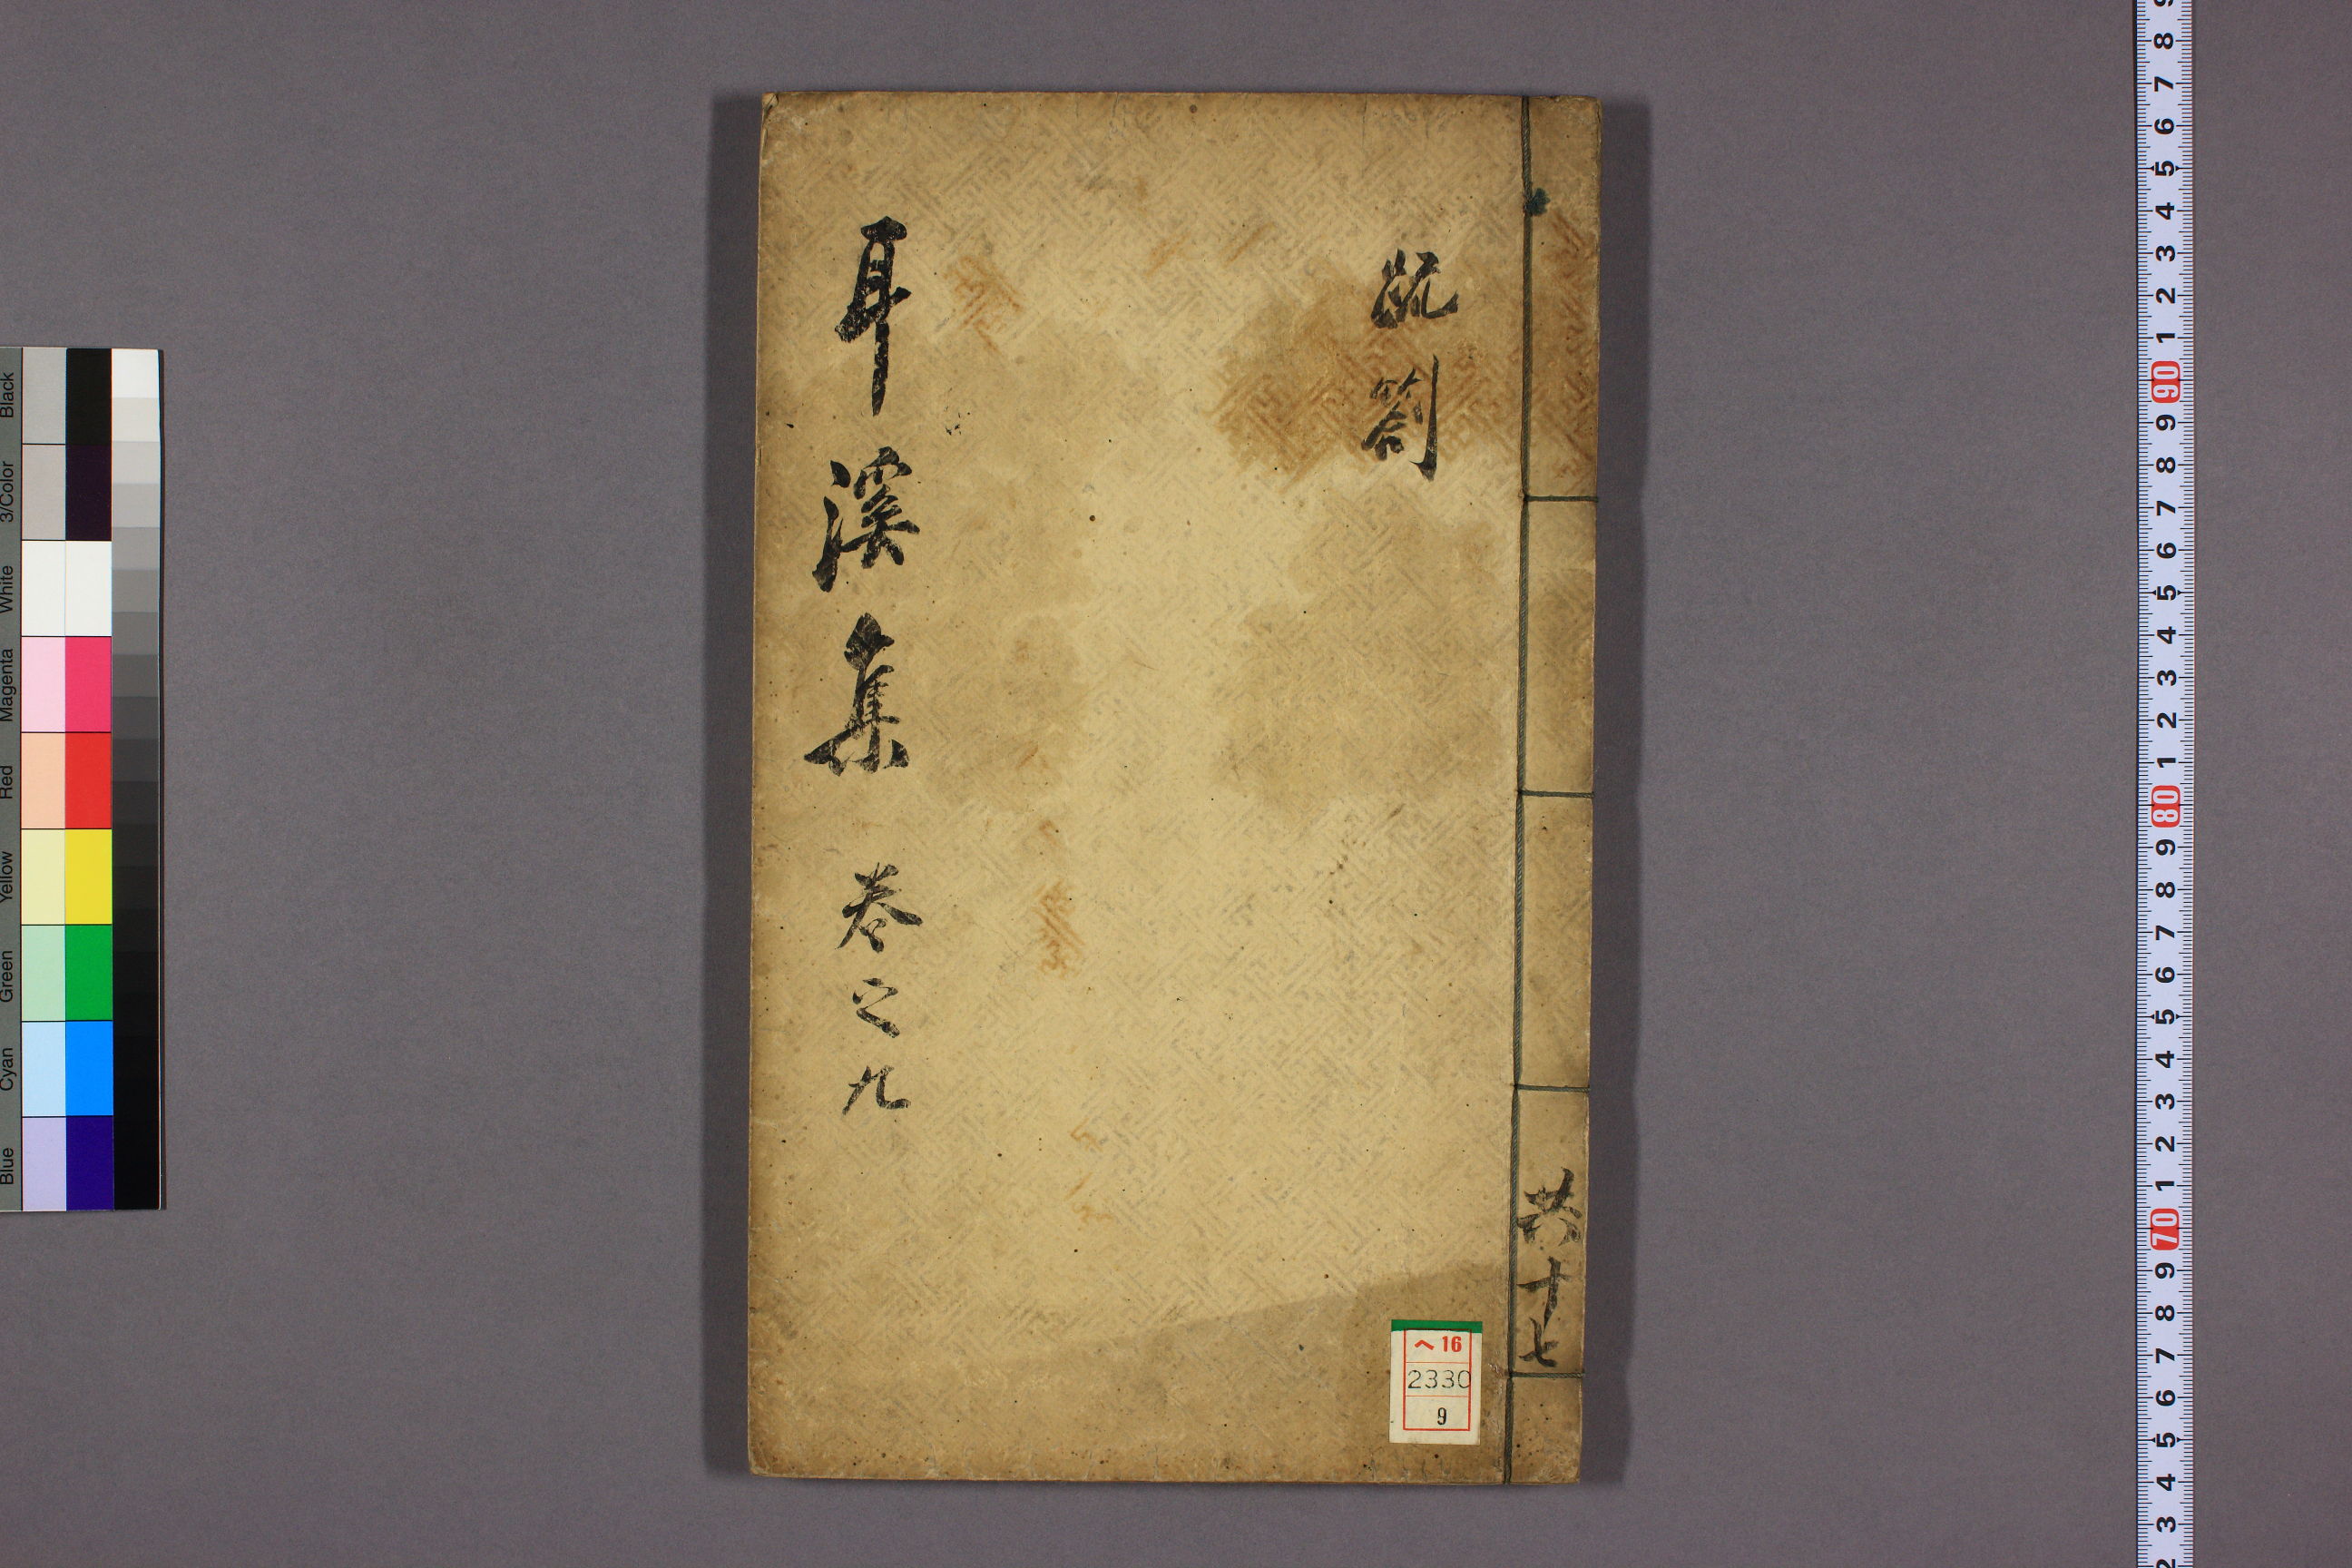 疏劄
耳溪集 卷之九
共十七
ヘ16
2330
9
Black
3/Color
White
Magenta
Red
Yellow
Green
Cyan
Blue
9
8
7
6
5
4
3
2
1
90
9
8
7
6
5
4
3
2
1
80
9
8
7
6
5
4
3
2
1
70
9
8
7
6
5
4
3
2